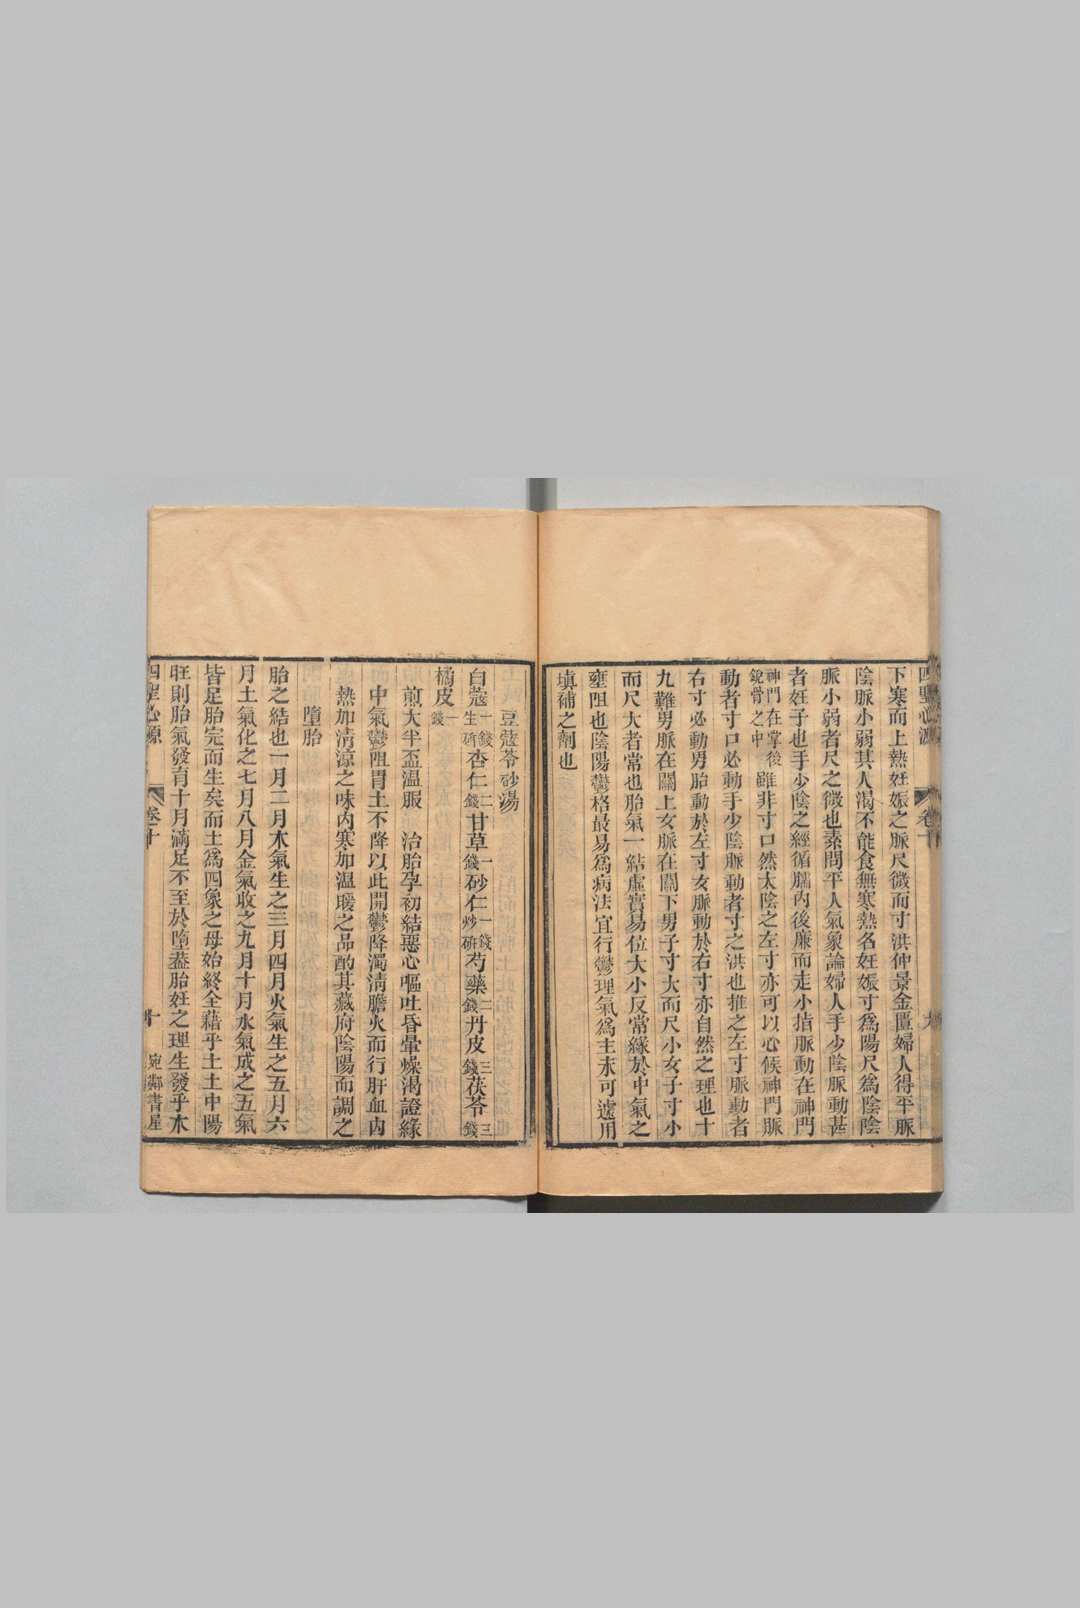 下寒而上熱妊娠之脈尺微而寸洪仲景金匱婦人得平脈
陰脈小弱其人渴不能食無寒熱名妊娠寸為陽尺為陰陰
脈小弱者尺之微也素問平人氣象論婦人手少陰脈動甚
者妊子也手少陰之經循臑內後廉而走小指脈動在神門
神門在掌後銳骨之中雖非寸口然太陰之左寸亦可以心候神門脈
動者寸口必動手少陰脈動者寸之洪也推之左寸脈動者
右寸必動男胎動於左寸女脈動於右寸亦自然之理也十
九難男脈在關上女脈在關下男子寸大而尺小女子寸小
而尺大者常也胎氣一結虛實易位大小反常緣於中氣之
壅阻也陰陽鬱格最易為病法宜行鬱理氣為主未可遽用
填補之劑也
豆蔻苓砂湯
白蔻一錢生研杏仁二錢甘草一錢砂仁一錢炒研芍藥二錢丹皮三錢茯苓三錢
橘皮一錢
煎大半盃溫服 治胎孕初結惡心嘔吐昏暈燥渴證緣
中氣鬱阻胃土不降以此開鬱降濁清膽火而行肝血內
熱加清涼之味內寒加溫暖之品酌其藏府陰陽而調之
墮胎
胎之結也一月二月木氣生之三月四月火氣生之五月六
月土氣化之七月八月金氣收之九月十月水氣成之五氣
皆足胎完而生矣而土為四象之母始終全藉乎土土中陽
旺則胎氣發育十月滿足不至於墮葢胎妊之理生發乎木
四聖心源 卷十 十 宛鄰書屋